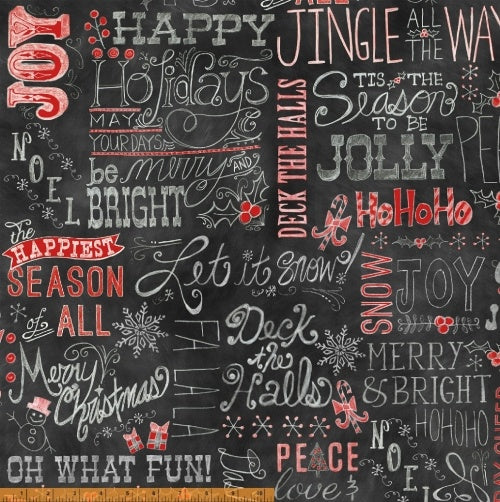 JOY
HAPPY
Holidays
MAY
YOUR DAYS
be merry AND
BRIGHT
NOEL
the
HAPPIEST
SEASON
of
ALL
Merry
Christmas
OH WHAT FUN!
Let it Snow!
FALALA
DECK THE HALLS
JINGLE ALL THE WAY
'TIS THE
Season
TO BE
JOLLY
HoHoHo
SNOW
JOY
Deck
the
Halls
MERRY
& BRIGHT
HOHOHO
NOEL
PEACE
love &